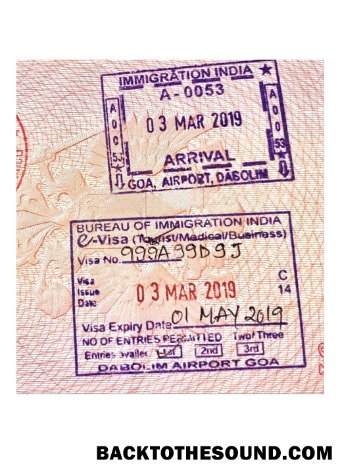 IMMIGRATION INDIA
A-0053
A0053
A0053
03 MAR 2019
ARRIVAL
GOA, AIRPORT, DABOLIM
BUREAU OF IMMIGRATION INDIA
e-Visa (Tourist/Medical/Business)
Visa No. 999A39D9J
Visa
Issue
Date
03 MAR 2019
C
14
Visa Expiry Date 01 MAY 2019
NO OF ENTRIES PERMITTED Two/Three
Entries availed 1st 2nd 3rd
DABOLIM AIRPORT GOA
BACKTOTHESOUND.COM